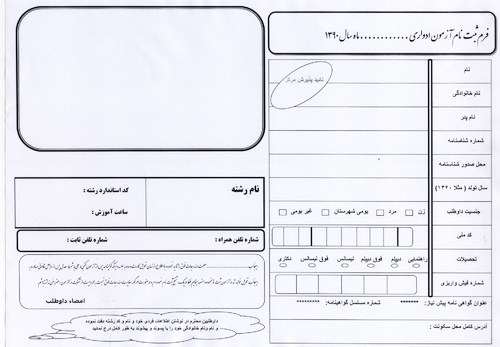 فرم ثبت نام آزمون ادواری ............ماه سال ۱۳۹۰
نام
تائید پذیرش مرکز
نام خانوادگی
نام پدر
شماره شناسنامه
محل صدور شناسنامه
سال تولد ( مثلا ۱۳۶۰)
جنسیت داوطلب
زن مرد بومی شهرستان غیر بومی
کد ملی
تحصیلات
راهنمایی دیپلم فوق دیپلم لیسانس فوق لیسانس دکتری
شماره فیش واریزی
عنوان گواهی نامه پیش نیاز: ******** شماره مسلسل گواهینامه: ********
آدرس کامل محل سکونت :
نام رشته
کد استاندارد رشته :
ساعت آموزش :
شماره تلفن همراه : شماره تلفن ثابت :
امضاء داوطلب
داوطلبین محترم در نوشتن اطلاعات فردی خود و نام و کد رشته دقت نموده
و نام ونام خانوادگی خود را با پسوند و پیشوند به طور کامل درج نمایید